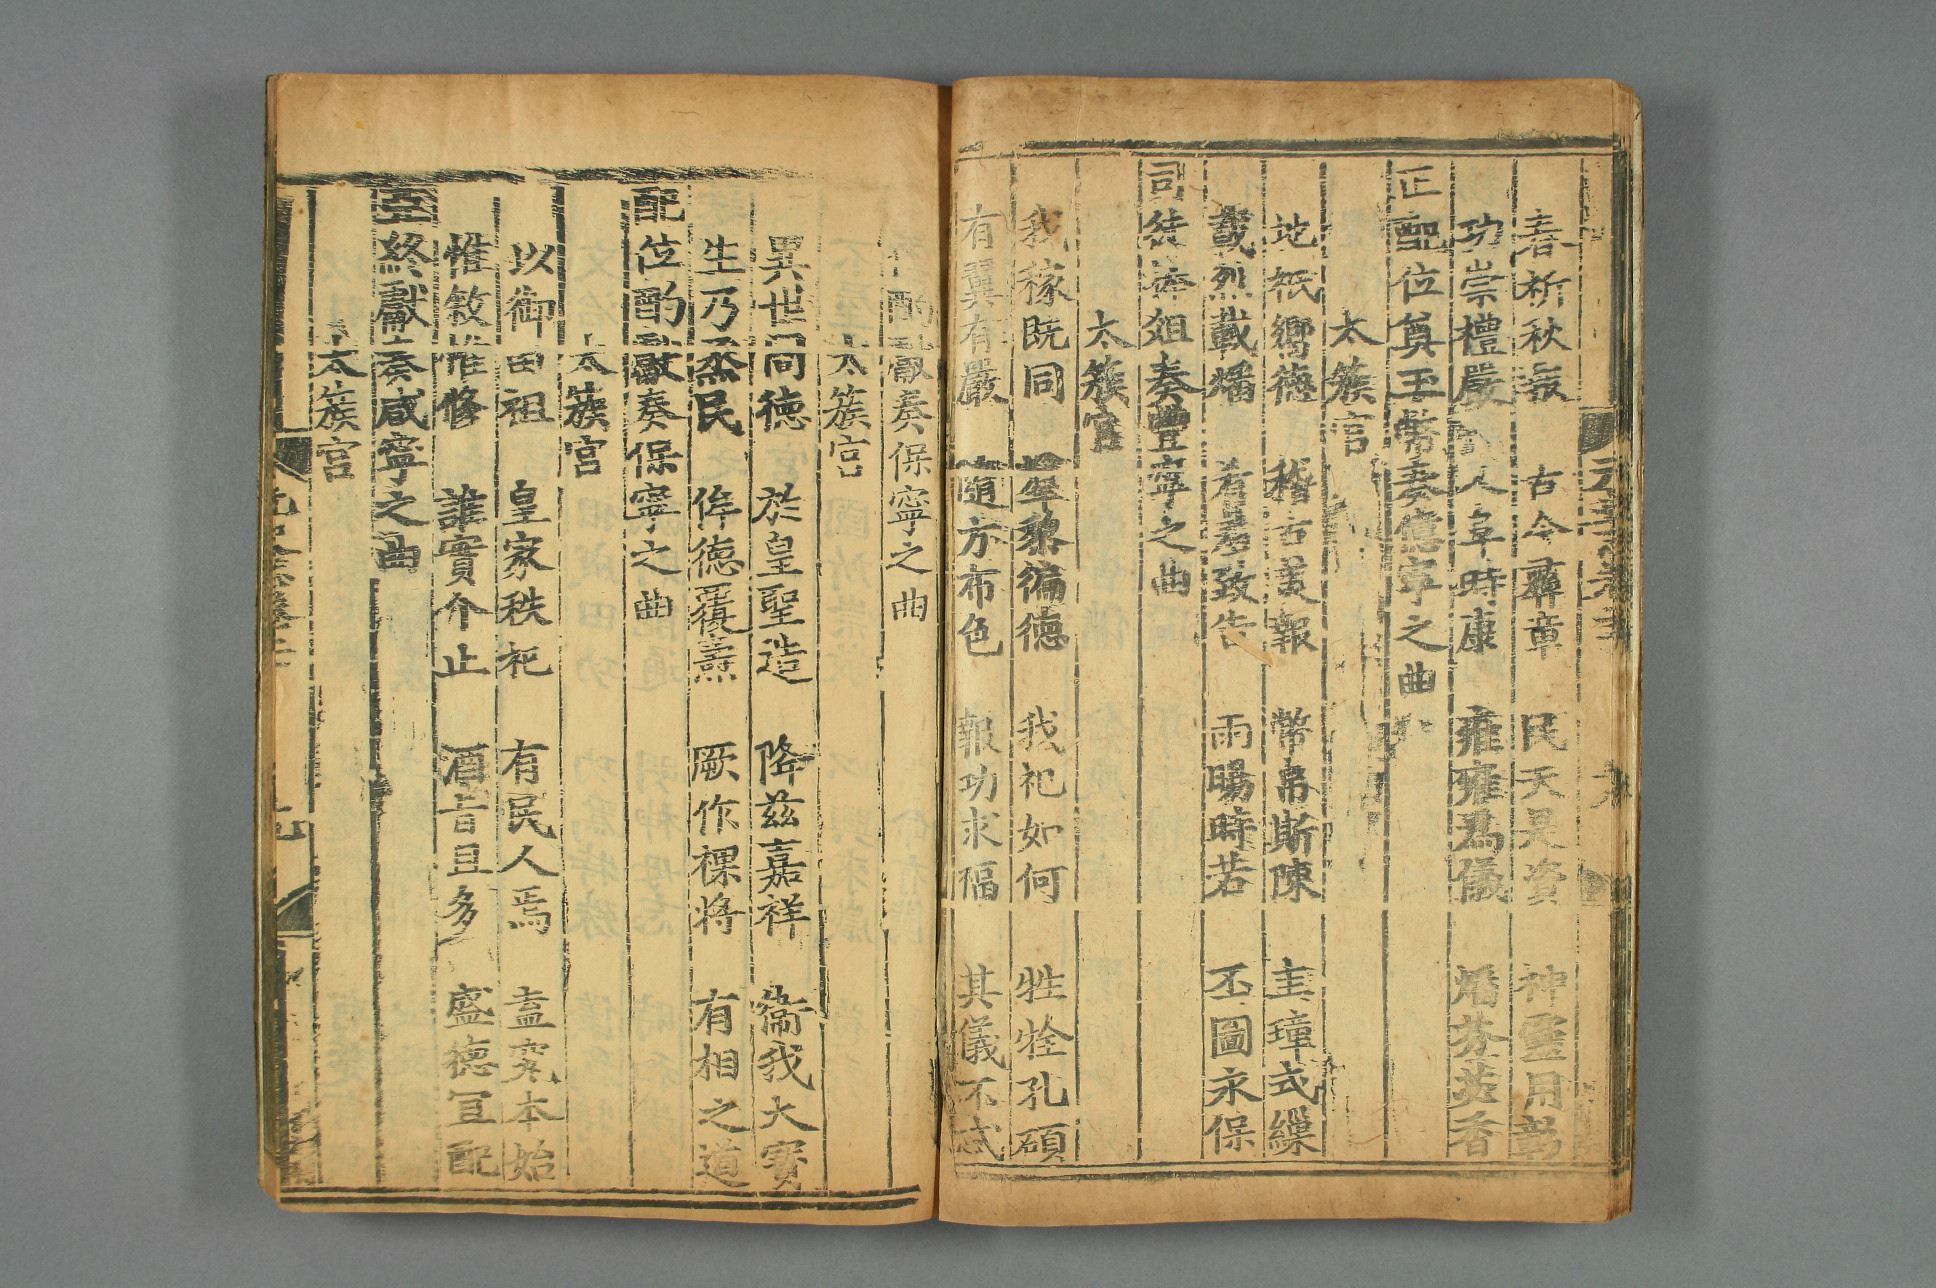 春祈秋報 古今彝章 民天是資 神靈用彰
功崇禮嚴 人阜時康 雍雍爲儀 燔芬苾香
正配位奠玉幣奏億寧之曲
太簇宮
地祇嚮德 稽古美報 幣帛斯陳 圭璋式繅
載烈載燔 肴羞致告 雨暘時若 丕圖永保
司徒奉俎奏豐寧之曲
太簇宮
我稼既同 羣黎徧德 我祀如何 牲牷孔碩
有翼有嚴 隨方布色 報功求福 其儀不忒
酌獻奏保寧之曲
太簇宮
異世同德 於皇聖造 降茲嘉祥 衞我大寶
生乃烝民 侔德覆燾 厥作祼將 有相之道
配位酌獻奏保寧之曲
太簇宮
以御田祖 皇家秩祀 有民人焉 盍究本始
惟敘惟修 誰實介止 酒旨且多 盛德宜配
亞終獻奏咸寧之曲
太簇宮